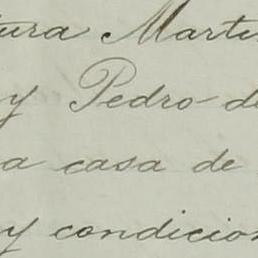 tura Marti
y Pedro de
a casa de
y condicion